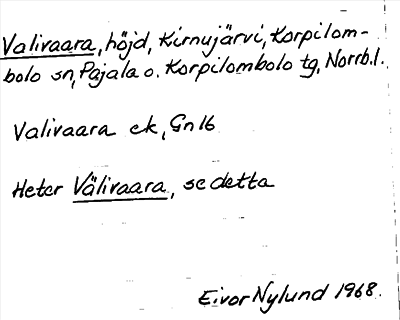 Valivaara, höjd, Kirnujärvi, Korpilom-
bolo sn, Pajala o. Korpilombolo tg, Norrb.l.
Valivaara ek, Gn 16
Heter Välivaara, se detta
Eivor Nylund 1968.